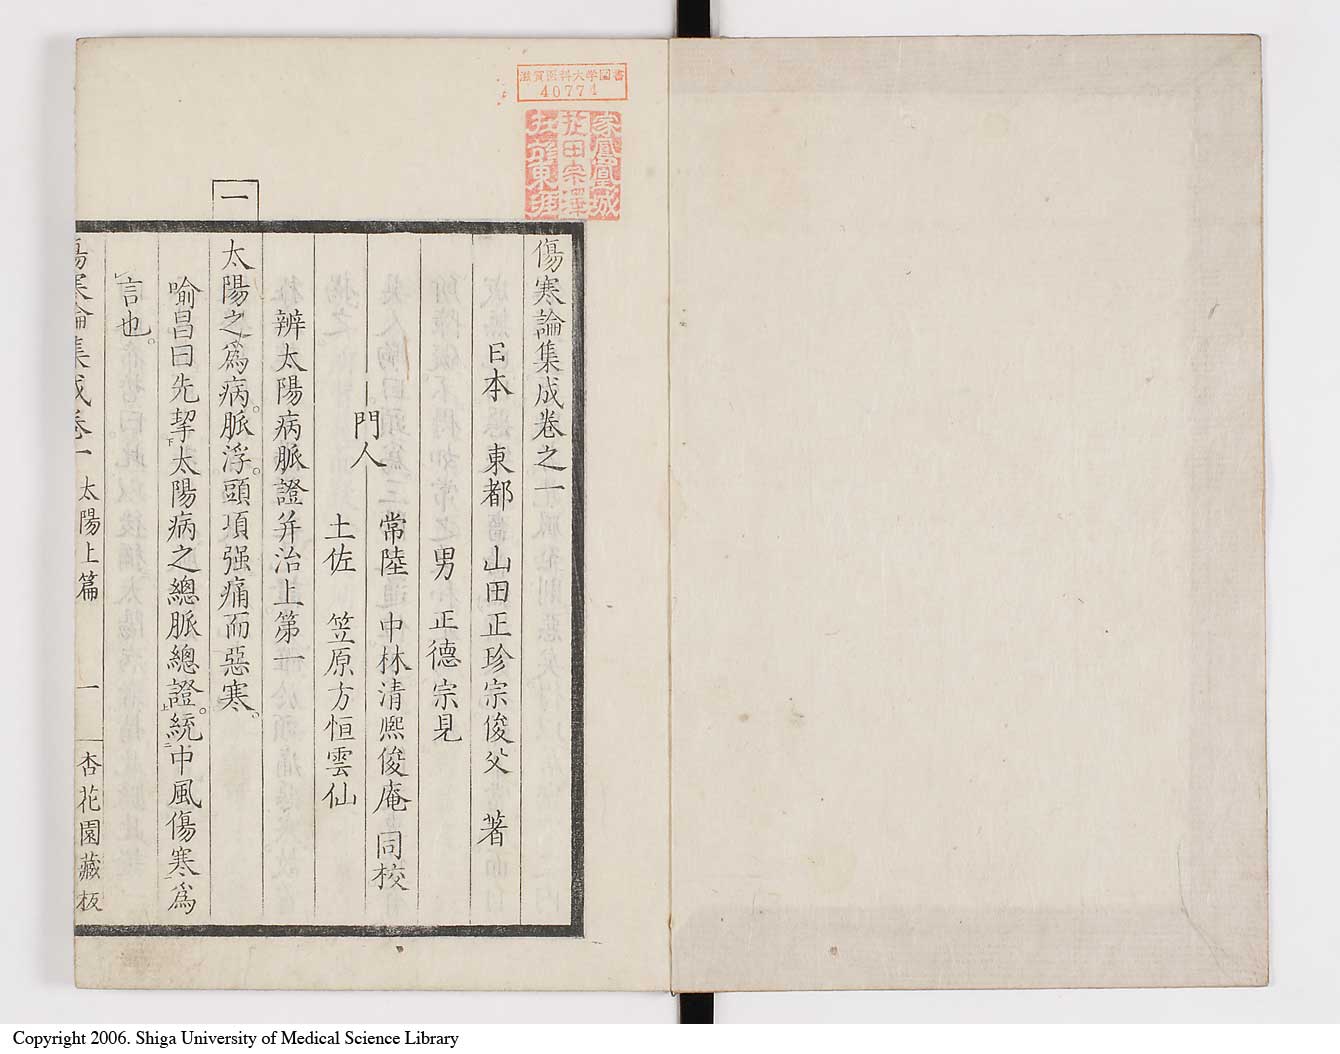 滋賀医科大学図書
40771
家鳳凰城
荘田宗澤
在東涯
一
傷寒論集成卷之一
日本 東都 山田正珍宗俊父 著
男 正德宗見
門人 常陸 中林清熙俊庵 同校
土佐 笠原方恒雲仙
辨太陽病脈證并治上第一
太陽之爲病。脈浮。頭項强痛而惡寒。
喻昌曰先挈下太陽病之總脈總證。上統二中風傷寒一爲
レ言也。
傷寒論集成卷一 太陽上篇 一 杏花園藏板
Copyright 2006. Shiga University of Medical Science Library